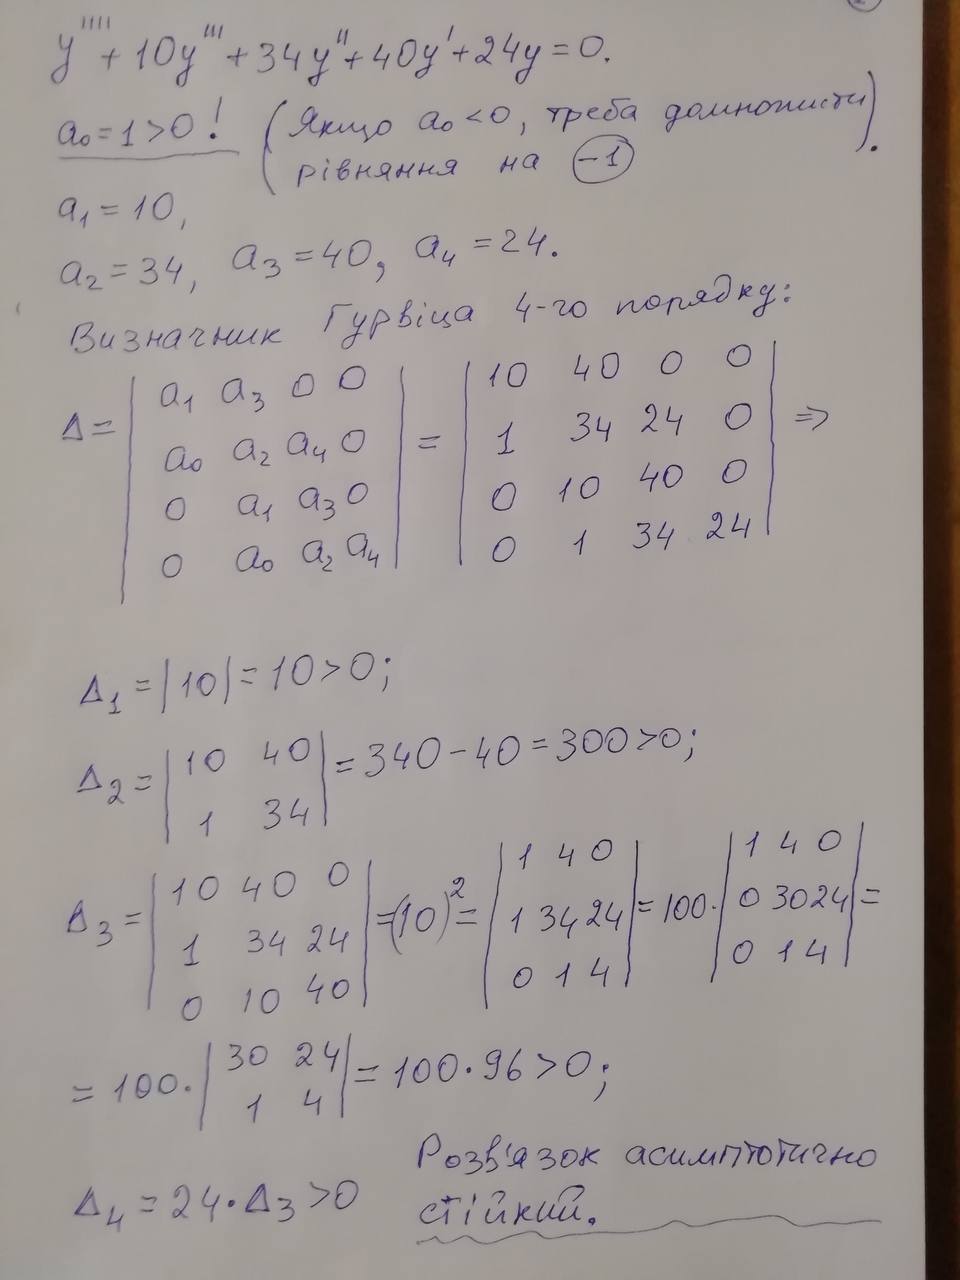 y'''' + 10y''' + 34y'' + 40y' + 24y = 0.
a₀ = 1 > 0 ! (Якщо a₀ < 0, треба домножити
рівняння на -1).
a₁ = 10,
a₂ = 34, a₃ = 40, a₄ = 24.
Визначник Гурвіца 4-го порядку:
Δ = | a₁ a₃ 0 0 | = | 10 40 0 0 | ⇒
| a₀ a₂ a₄ 0 | | 1 34 24 0 |
| 0 a₁ a₃ 0 | | 0 10 40 0 |
| 0 a₀ a₂ a₄ | | 0 1 34 24 |
Δ₁ = |10| = 10 > 0;
Δ₂ = | 10 40 | = 340 - 40 = 300 > 0;
| 1 34 |
Δ₃ = | 10 40 0 | = (10)² = | 1 4 0 | = 100 · | 1 4 0 | =
| 1 34 24 | | 1 34 24 | | 0 30 24 |
| 0 10 40 | | 0 1 4 | | 0 1 4 |
= 100 · | 30 24 | = 100 · 96 > 0;
| 1 4 |
Δ₄ = 24 · Δ₃ > 0
Розв'язок асимптотично
стійкий.